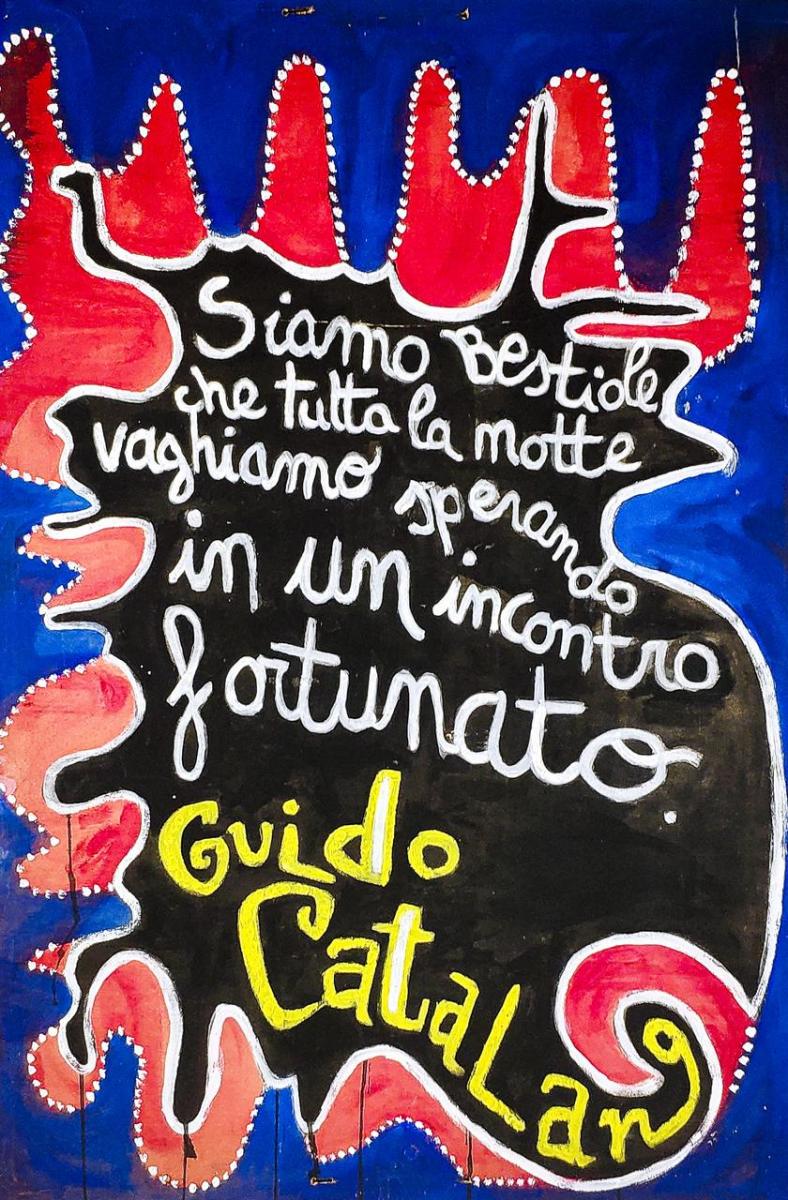 Siamo Bestiole
che tutta la notte
vaghiamo sperando
in un incontro
fortunato.
Guido
Catalano